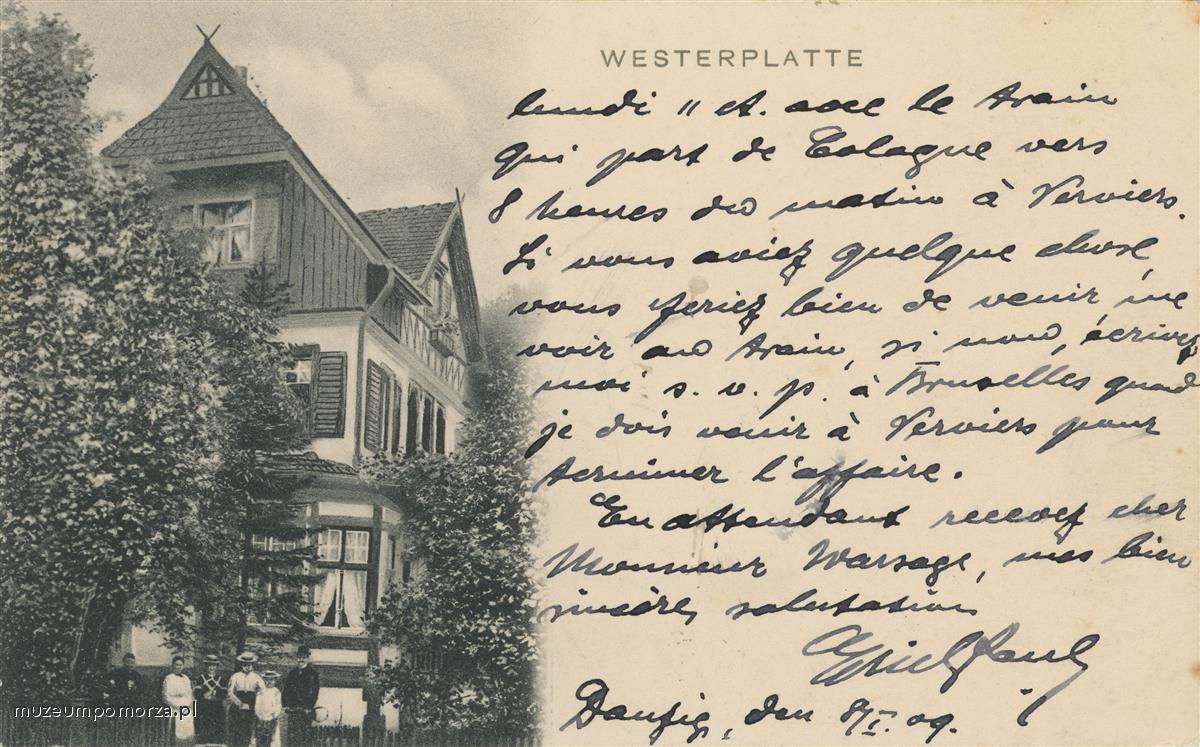 WESTERPLATTE
lundi 11 ct. avec le train
qui part de Cologne vers
8 heures du matin à Verviers.
Si vous aviez quelque chose,
vous feriez bien de venir me
voir au train, si non, écrivez
moi s. v. p. à Bruxelles quand
je dois venir à Verviers pour
terminer l'affaire.
En attendant recevez cher
Monsieur Warsage, mes bien
sincères salutations
Danzig, den 8/I. 09.
muzeumpomorza.pl